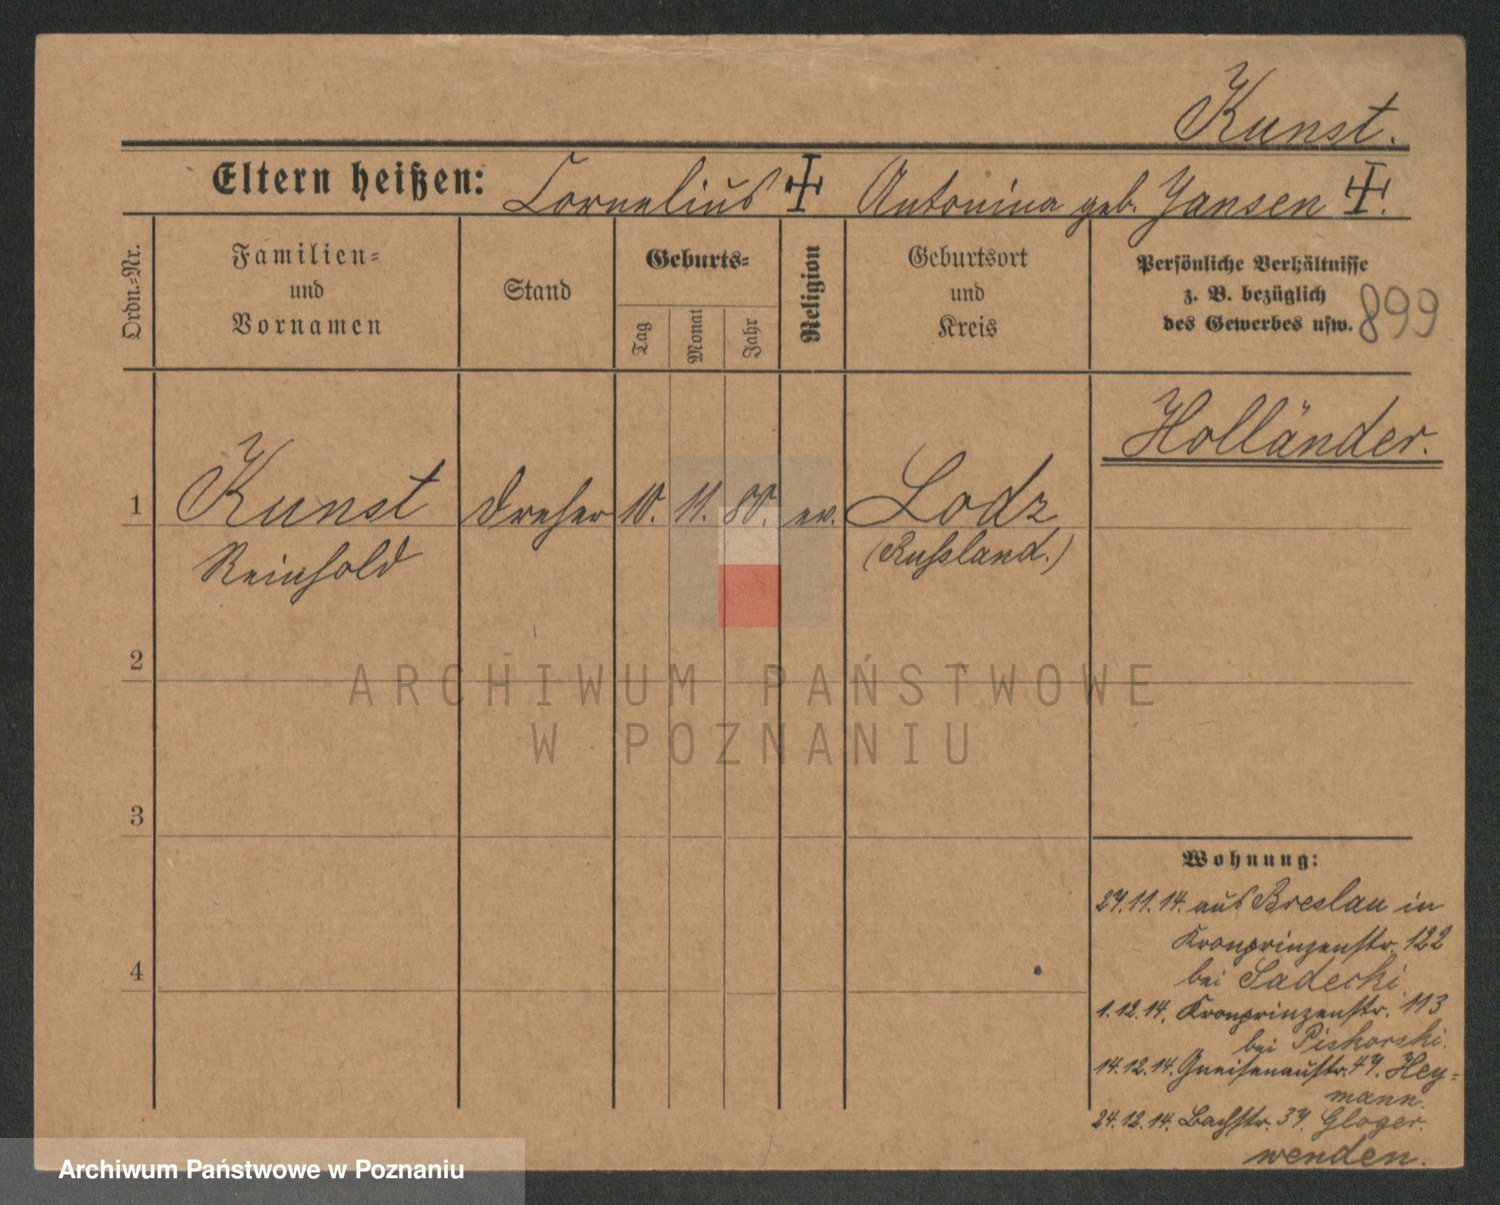 Kunst.
Eltern heißen: Cornelius ‡ Antonina geb. Jansen ‡.
Ordn.-Nr.
Familien-
und
Vornamen
Stand
Geburts-
Tag
Monat
Jahr
Religion
Geburtsort
und
Kreis
Persönliche Verhältnisse
z. B. bezüglich
des Gewerbes usw.
899
Holländer.
1 Kunst Dreher 10. 11. 80. ev. Lodz
Reinhold (Russland.)
2
3
4
Wohnung:
27.11.14. aus Breslau in
Kronprinzenstr. 122
bei Sadecki.
1.12.14. Kronprinzenstr. 113
bei Piskorski.
14.12.14. Gneisenaustr. 47. Hey-
mann.
24.12.14. Bachstr. 37. Gloger.
wenden.
ARCHIWUM PAŃSTWOWE
W POZNANIU
Archiwum Państwowe w Poznaniu